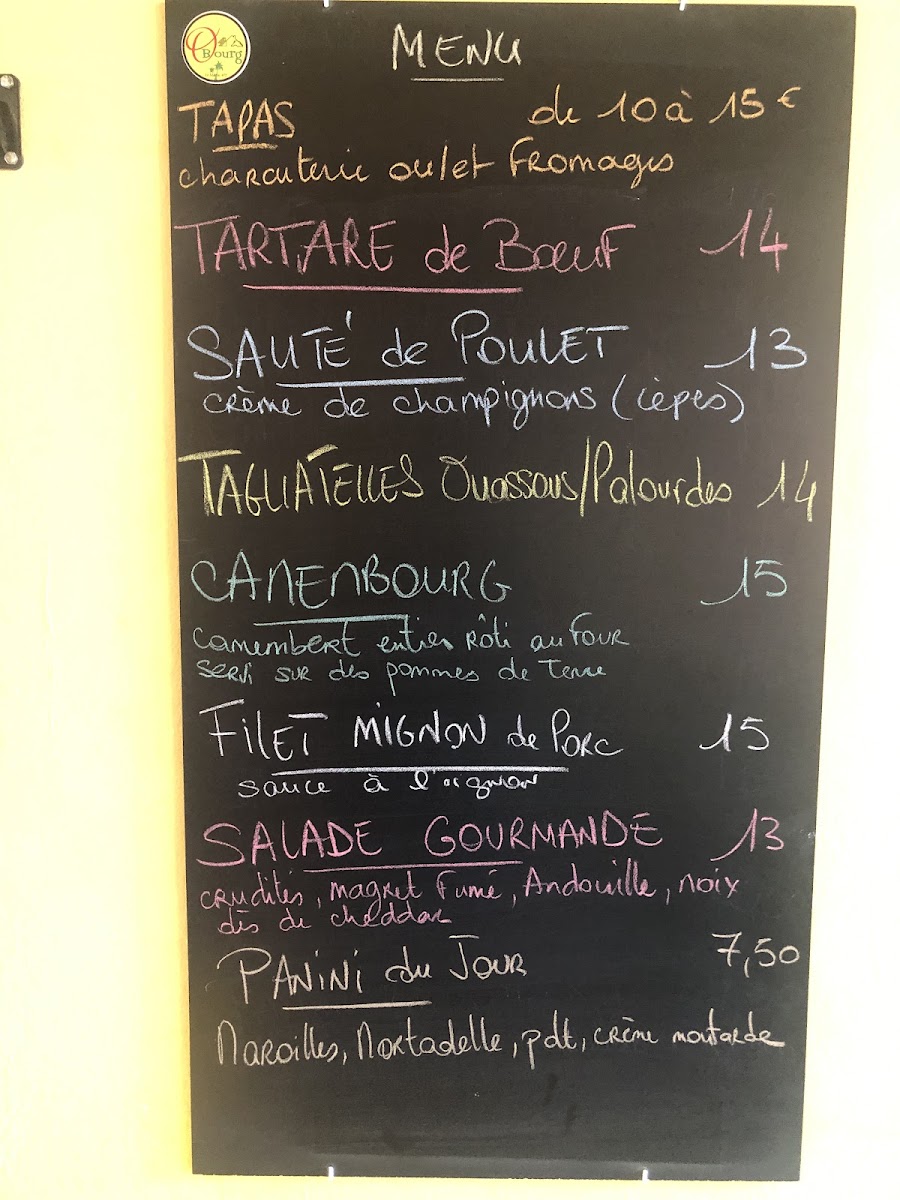 O Bourg
MENU
TAPAS de 10 à 15 €
charcuterie ou/et Fromages
TARTARE de Bœuf 14
SAUTÉ de POULET 13
crème de champignons (cèpes)
TAGLIATELLES Ouassous/Palourdes 14
CAMEMBOURG 15
camembert entier Rôti au Four
servi sur des pommes de Terre
FILET MIGNON de Porc 15
sauce à l'oignon
SALADE GOURMANDE 13
crudités, magret Fumé, Andouille, noix
dès de cheddar
PANINI du JOUR 7,50
Maroilles, Mortadelle, pdt, crème moutarde